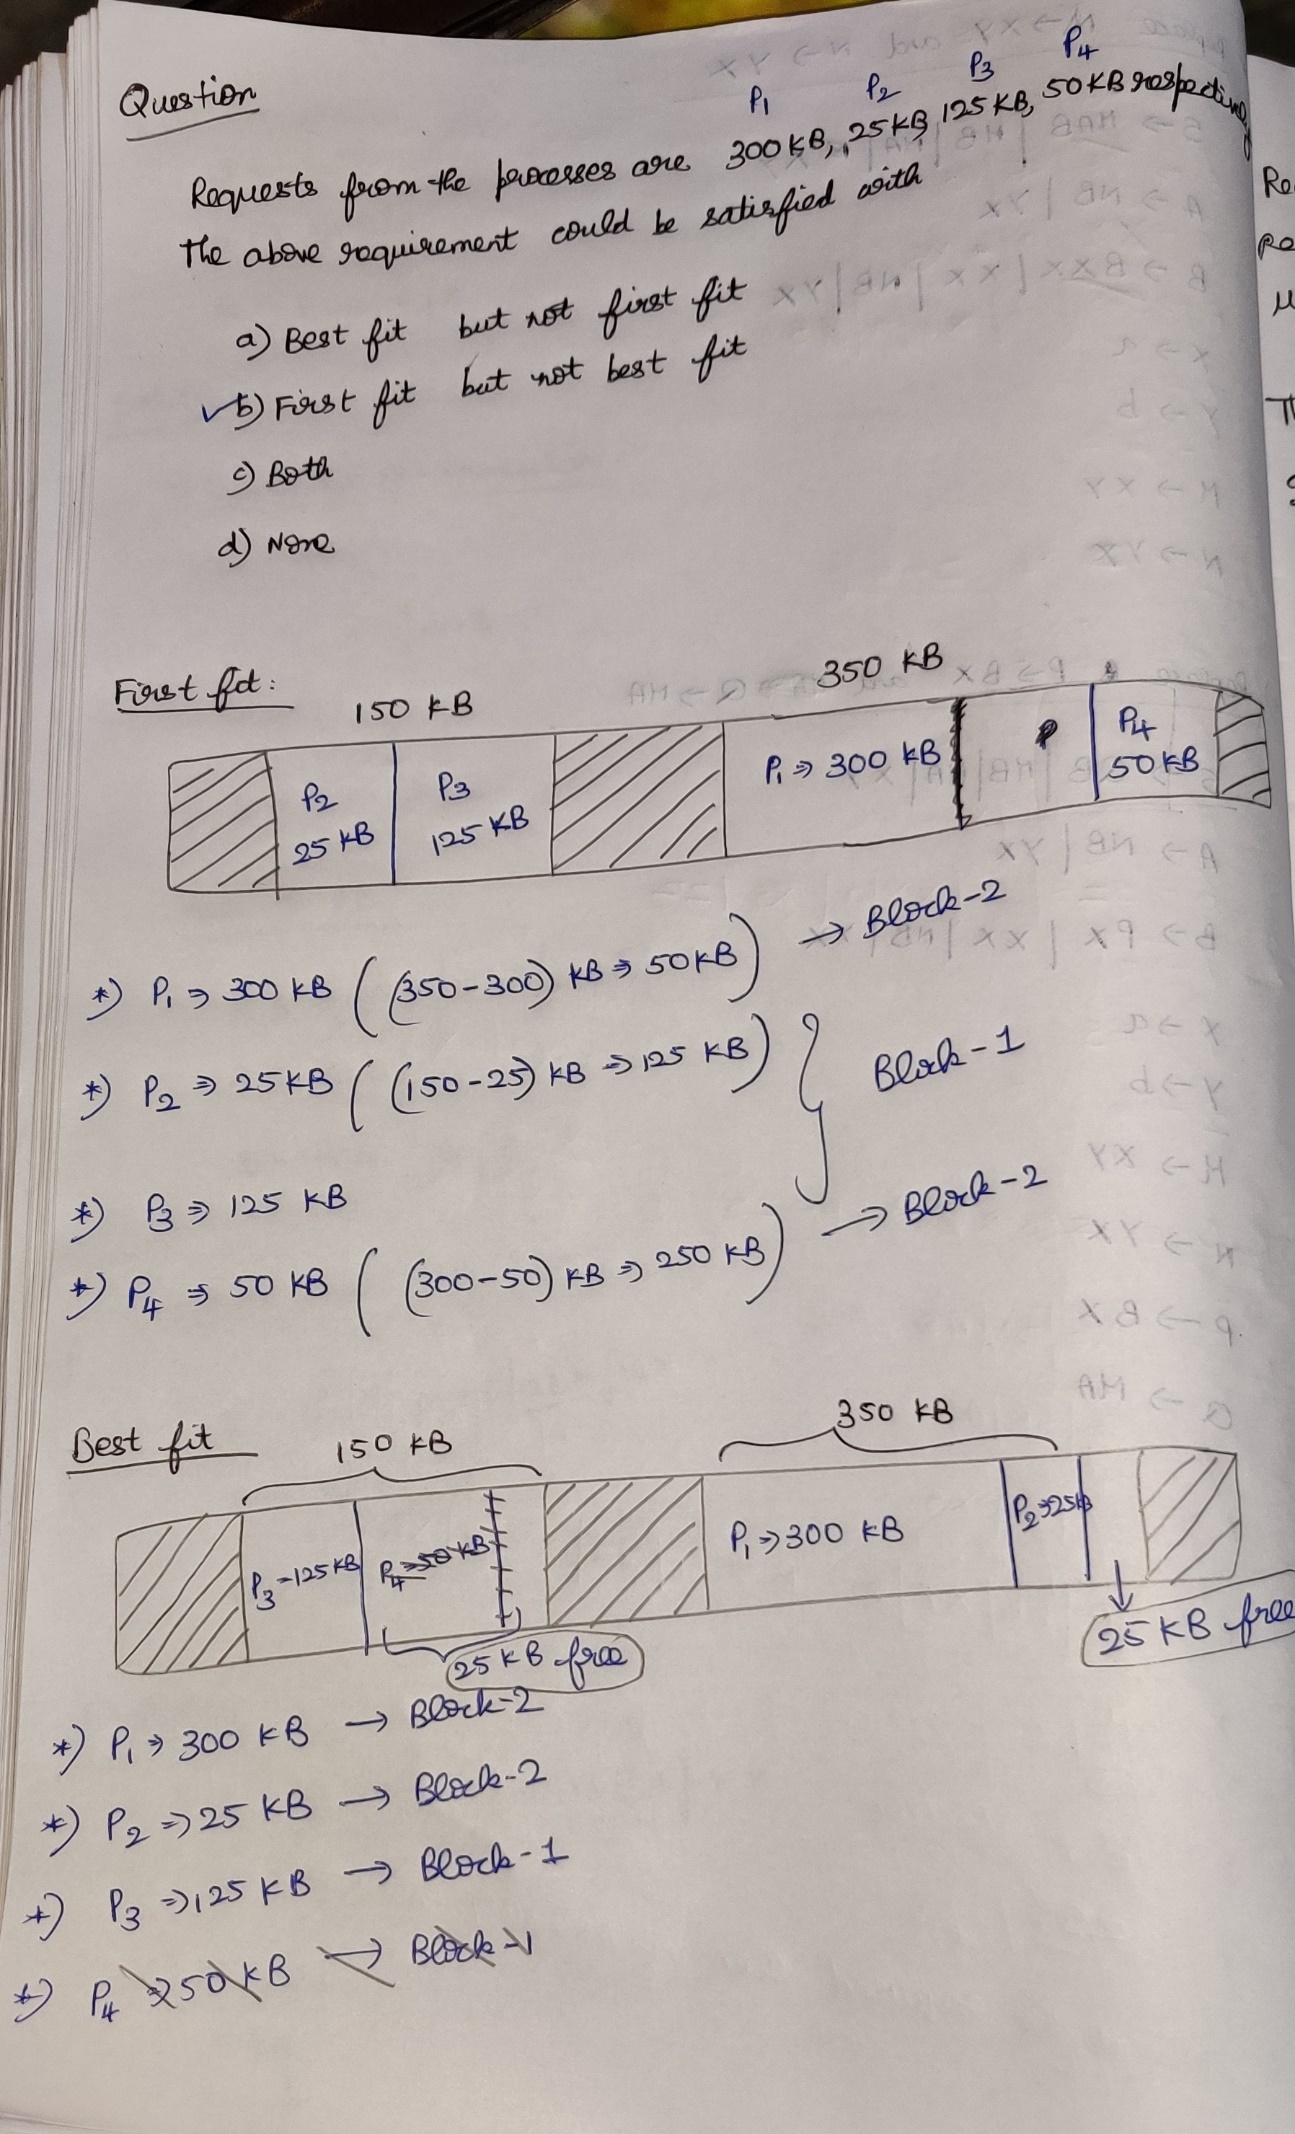 Question
P1 P2 P3 P4
Requests from the processes are 300 KB, 25 KB, 125 KB, 50 KB respectively
The above requirement could be satisfied with
a) Best fit but not first fit
✓b) First fit but not best fit
c) Both
d) None
First fit:
150 KB 350 KB
P2 25 KB P3 125 KB P1 ⇒ 300 KB P4 50 KB
*) P1 ⇒ 300 KB ((350-300) KB ⇒ 50 KB) → Block-2
*) P2 ⇒ 25 KB ((150-25) KB ⇒ 125 KB) } Block-1
*) P3 ⇒ 125 KB
*) P4 ⇒ 50 KB ((300-50) KB ⇒ 250 KB) → Block-2
Best fit
150 KB 350 KB
P3 - 125 KB P4 ⇒ 50 KB P1 ⇒ 300 KB P2 ⇒ 25KB
25 KB free 25 KB free
*) P1 ⇒ 300 KB → Block-2
*) P2 ⇒ 25 KB → Block-2
*) P3 ⇒ 125 KB → Block-1
*) P4 ⇒ 50 KB → Block-1